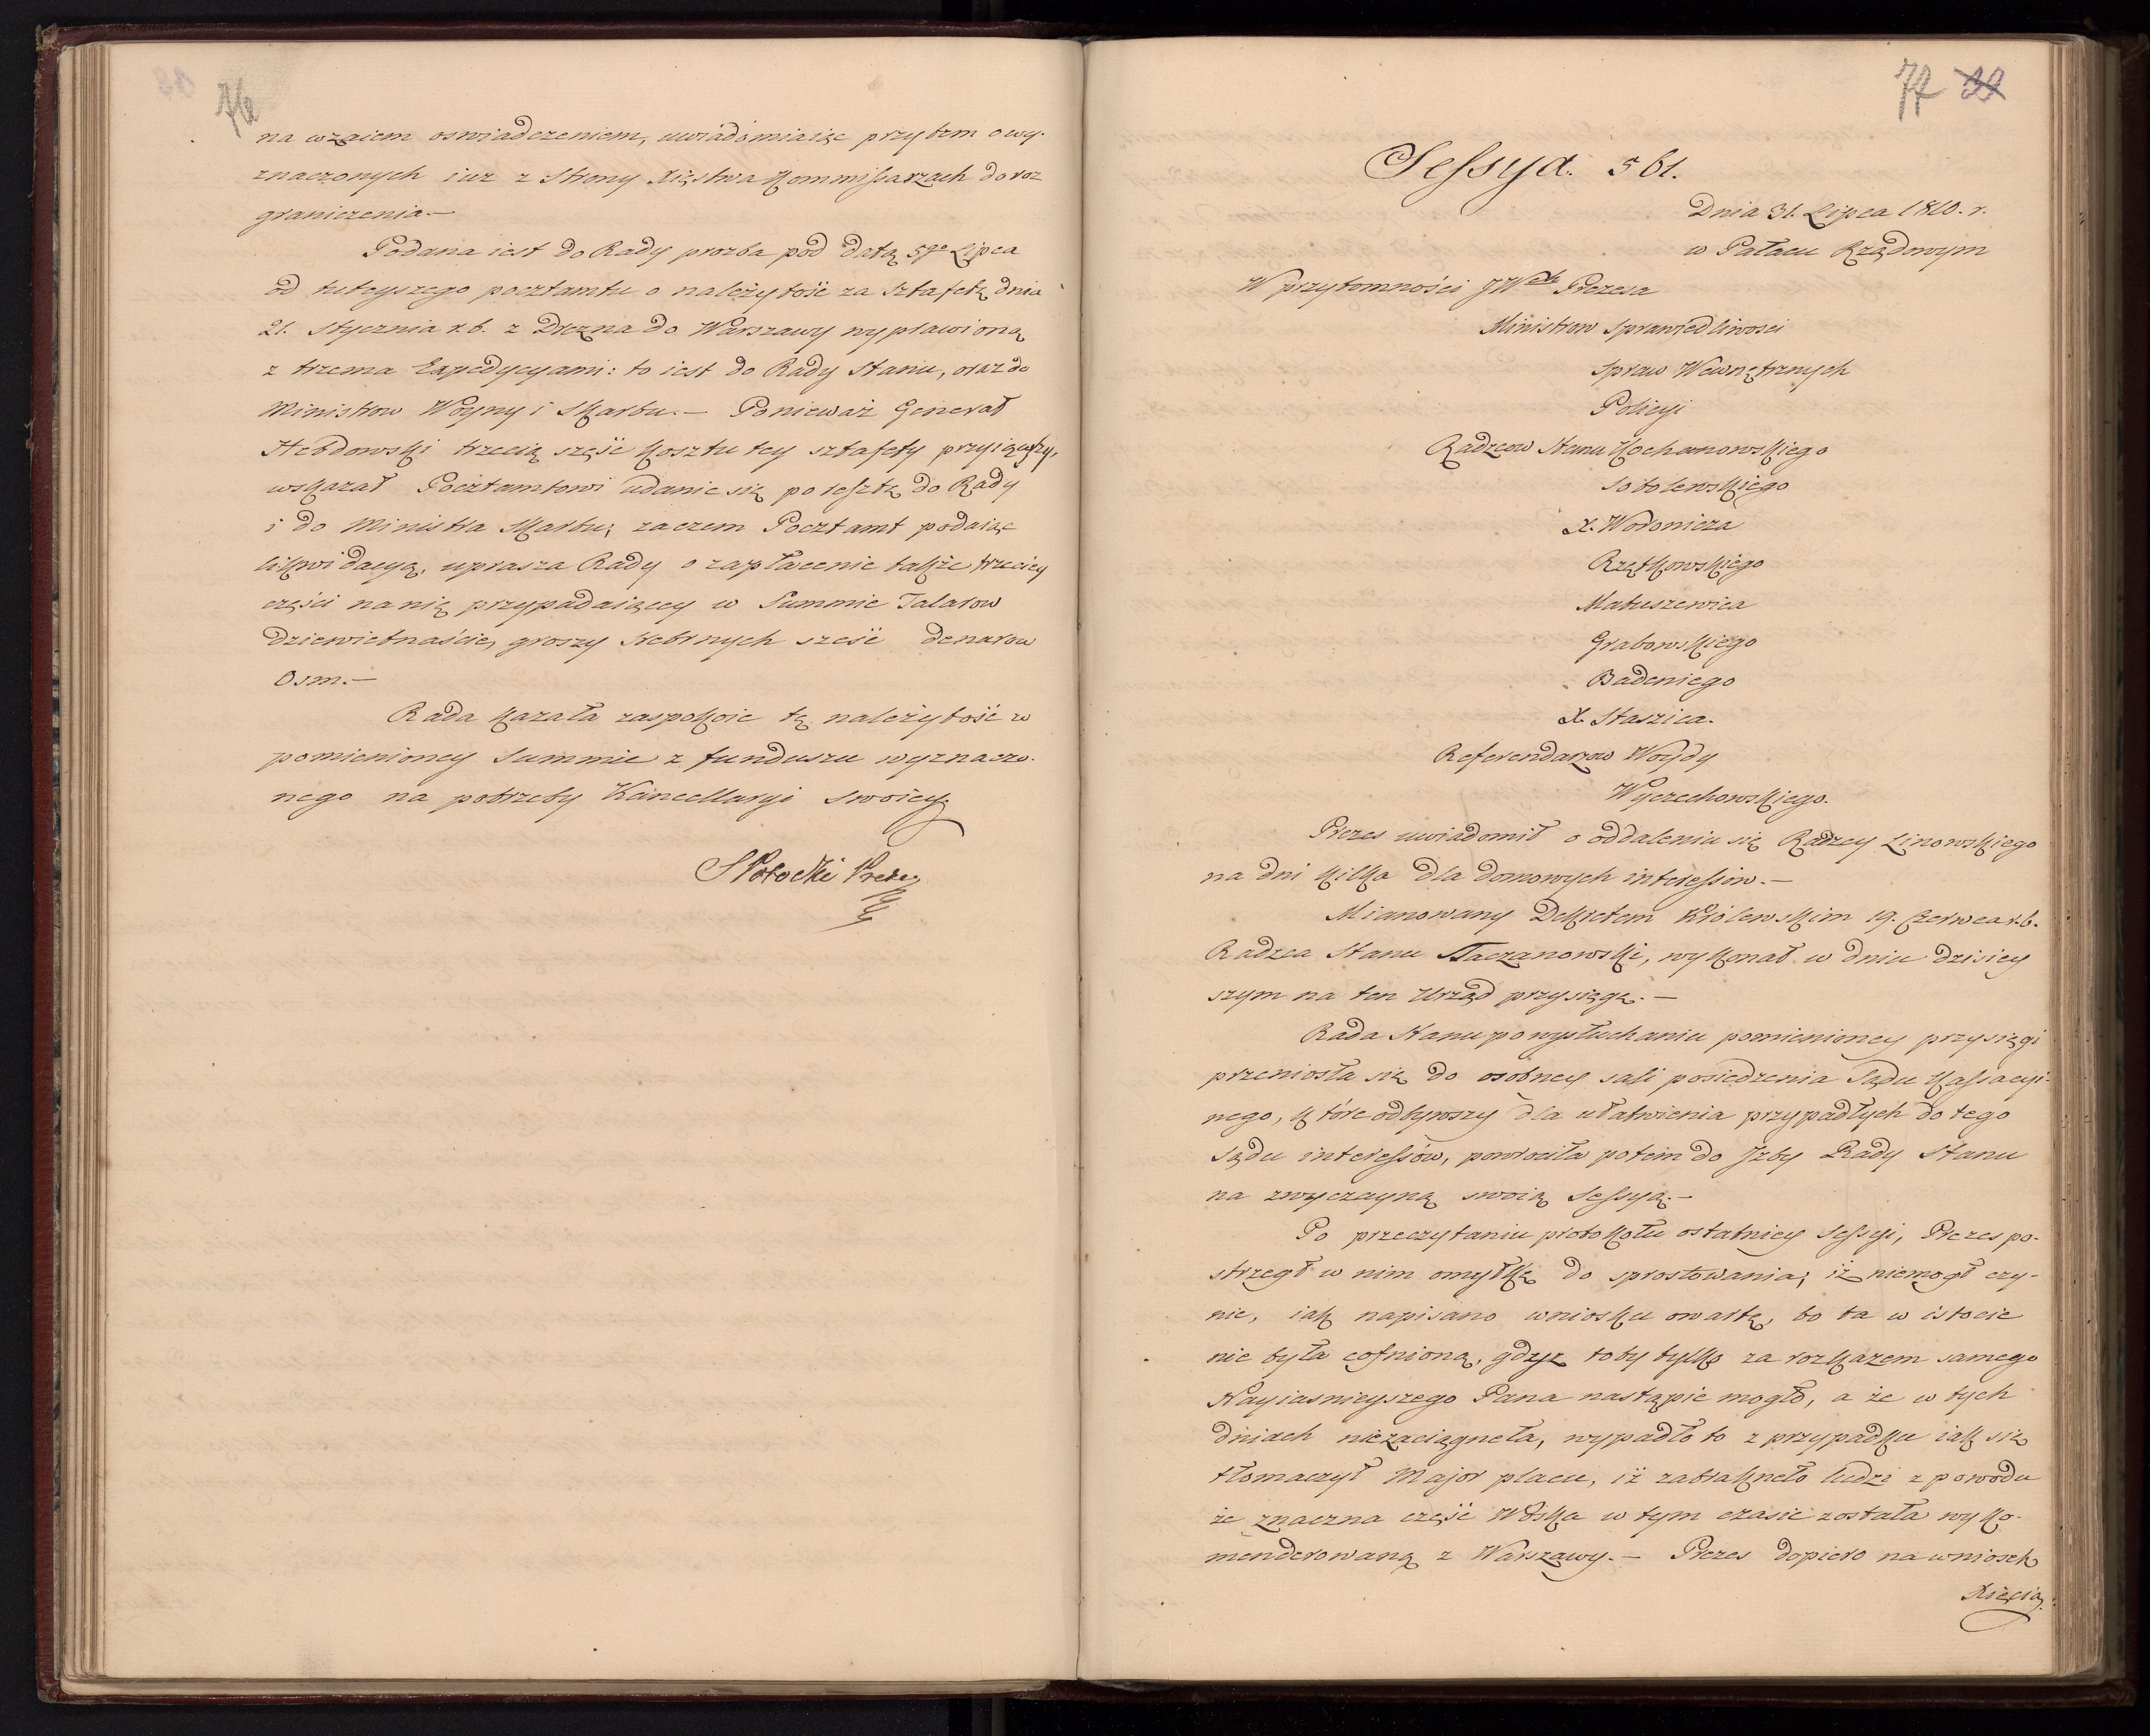 76
na wzaiem oswiadczeniem, uwiadomiaiąc przytem o wy-
znaczonych iuz z Strony Xięstwa Kommissarzach do roz
graniczenia.—
Podana iest do Rady prozba pod datą 5go Lipca
od tuteyszego pocztamtu o należytość za Sztafetę dnia
21. Stycznia r. b. z Drezna do Warszawy wyprawioną
z trzema Expedycyami: to iest do Rady Stanu, oraz do
Ministrow Woyny i Skarbu.— Ponieważ Generał
Hebdowski trzecią część kosztu tey sztafety przyiąwszy,
wskazał Pocztamtowi udanie się po resztę do Rady
i do Ministra Skarbu; zaczem Pocztamt podaiąc
likwidacyą, uprasza Rady o zapłacenie także trzeciey
części na nię przypadaiącey w Summie Talarow
dziewietnaście, groszy srebrnych sześć denarow
Osm.—
Rada kazała zaspokoic tę należytość w
pomienioney Summie z funduszu wyznaczo-
nego na potrzeby Kancellaryi Swoiey.
S Potocki Prezes
77 39
Sessya. 561.
Dnia 31. Lipca 1810. r.
w Pałacu Rządowym
W przytomności JW Prezesa
Ministrow Sprawiedliwosci
Spraw Wewnętrznych
Policyi
Radzcow Stanu Kochanowskiego
Sobolewskiego
X. Woronicza
Rzętkowskiego
Matuszewica
Grabowskiego
Badeniego
X. Staszica.
Referendarzow Woydy
Wyczechowskiego.
Prezes uwiadomił o oddaleniu się Radzcy Linowskiego
na dni kilka dla domowych interessów.—
Mianowany Dekretem Królewskim 19. Czerwca r. b.
Radzca Stanu Taczanowski, wykonał w dniu dzisiey
szym na ten Urząd przysięgę.—
Rada Stanu po wysłuchaniu pomienioney przysięgi
przeniosła się do osobney sali posiedzenia Sądu Kassacyi-
nego, które odbywszy dla ułatwienia przypadłych do tego
Sądu interessów, powrociła potem do Izby Rady Stanu
na zwyczayną swoią Sessyą.—
Po przeczytaniu protokołu ostatniey Sessyi, Prezes po-
strzegł w nim omyłkę do sprostowania; iż niemogł czy-
nic, iak napisano wniosku o wartę, bo ta w istocie
nie była cofnioną, gdyz toby tylko za rozkazem samego
Nayiasnieyszego Pana nastąpic mogło, a że w tych
dniach niezaciągneła, wypadło to z przypadku iak się
tłomaczył Major placu, iż zabrakneło ludzi z powodu
że znaczna część Woska w tym czasie została wyko-
menderowaną z Warszawy.— Prezes dopiero na wniosek
Xięcia